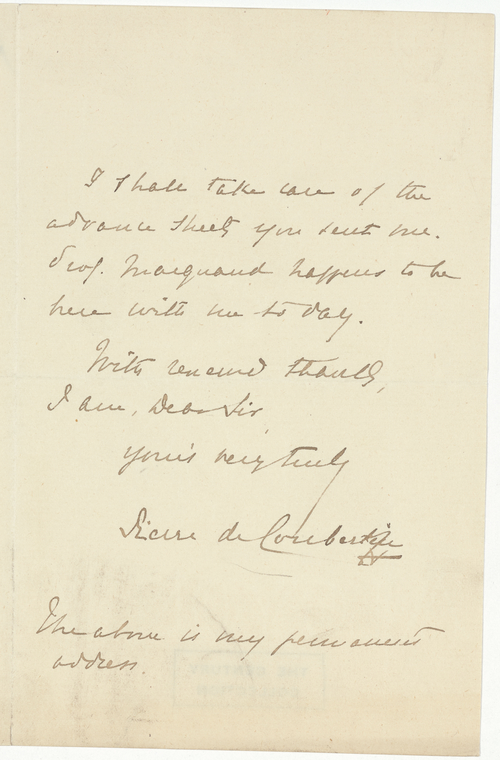 I shall take care of the
advance sheets you sent me.
Prof. Marquand happens to be
here with me to day.
With renewed thanks,
I am, Dear Sir,
your's very truly
Pierre de Coubertin
The above is my permanent
address.